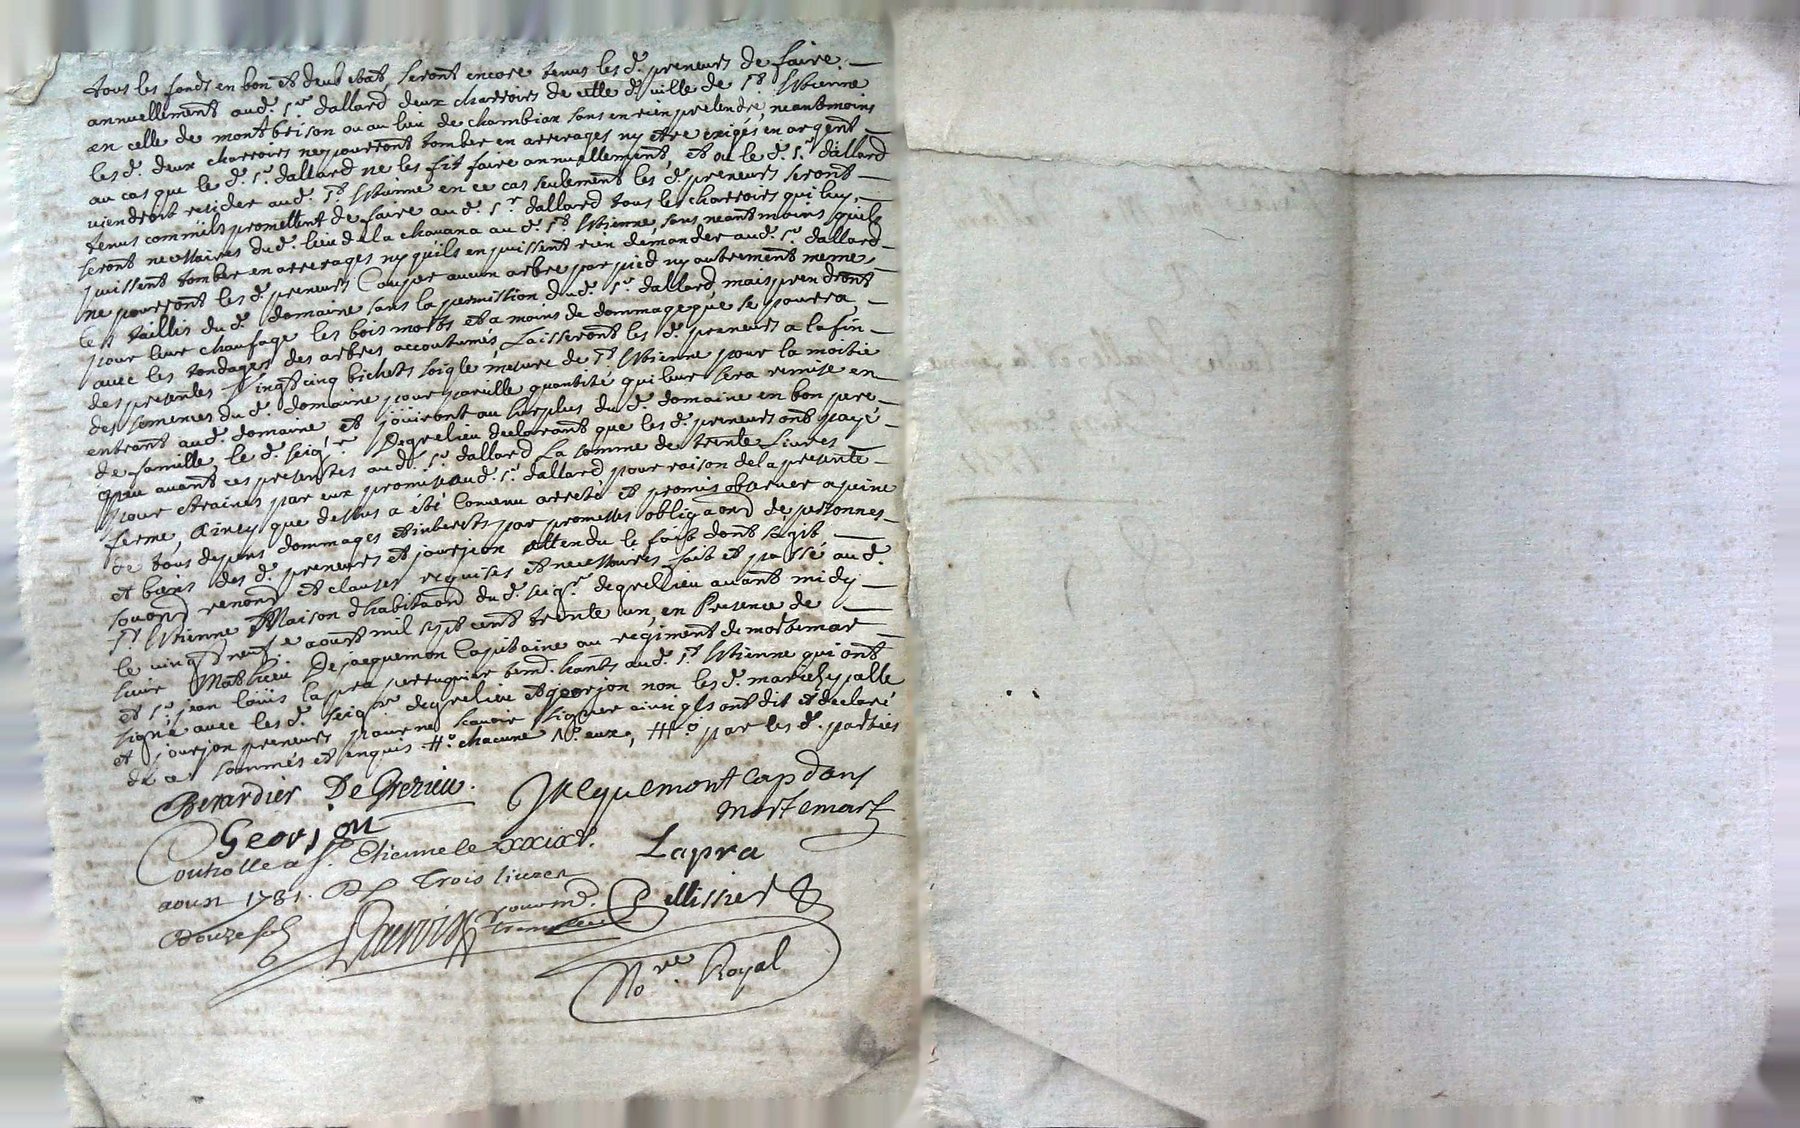 tous les fonds en bon et deub etat, seront encore tenus les d. preneurs de faire
annuellement aud. sr. dallard deux charroirs de cette d. ville de st. Estienne
en celle de montbrison ou au lieu de chambian sans en rien pretendre, neantmoins
les d. deux charroirs ne pourront tomber en arrerages ny etre exigés en argent
au cas que le d. sr. dallard ne les fit faire annuellement, et ou le d. sr. dallard
viendroit resider aud. st. Estienne en ce cas seulement les d. preneurs seront
tenus comm'ils promettent de faire aud. sr. dallard tous les charroirs qui luy
seront necessaires dud. lieu de la chavana aud. st. Estienne, sans neantmoins quils
puissent tomber en arrerages ny qu'ils en puissent rien demander aud. sr. dallard
ne pourront les d. preneurs Couper aucun arbre par pied ny autrement meme
les taillis dud. domaine sans la permission dud. sr. dallard mais prendront
pour leur chaufage les bois morts et a moins de dommage que se pourra
avec les tondages des arbres accoutumés, Laisseront les d. preneurs a la fin
des presentes Vingt cinq bichets soigle mesure de st. Estienne pour la moitie
des semences dud. domaine pour pareille quantité qui leur sera remise en
entrant aud. domaine et joüiront au surplus dud. domaine en bon pere
de famille, le d. seigr. Degrelieu declarant que les d. preneurs ont payé
peu avant ces presentes aud. sr. dallard La somme de trente Livres
pour etraines par eux promise aud. sr. dallard pour raison de la presente
ferme, Ainsy que dessus a été Convenu arreté et promis observer a peine
de tous depens dommages et interets par promesses obligaons de personnes
et biens des d. preneurs et jourjon attendu le fait dont s'agit
soumons renons et clauses requises et necessaires fait et passé aud.
st. Estienne Maison d'habitaon dud. seigr. degrelieu avant midy
le vingt neuf e aoust mil sept cent trente un, en Presence de
sieur Mathieu Dejacquemon Capitaine au regiment de mortemar
et sr. jean loüis lapra perruquier temd. hants aud. st. Estienne qui ont
signé avec les d. seigr. degrelieu et georjon non les d. marcelly palle
et jourjon preneurs pour ne scavoir signer ainsi qls ont dit et declaré
de ce sommés et enquis #. chacune d. eux, ##. par les d. parties
Berardier De Grezieu. Jacquemont cap dans
mortemart
Georjon
Controlle a st. Etienne le xxixe. Lapra
aoust 1731. R Trois livres
Douze sols Pellissier
Nore Royal